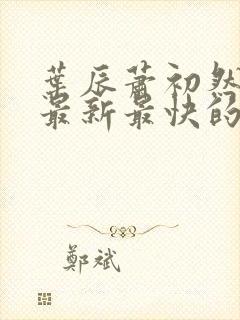 葉辰蕭初然
最新最快的
鄭斌